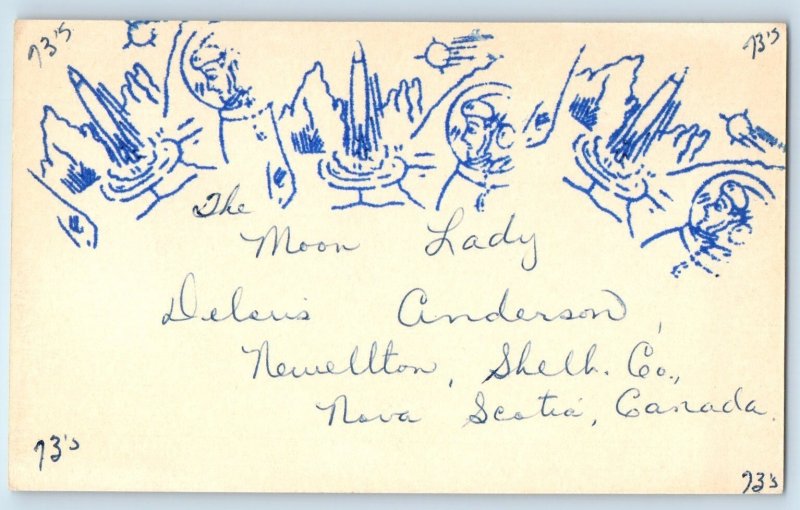 73's
73's
The
Moon Lady
Deloris Anderson,
Newellton, Shelb. Co.,
Nova Scotia, Canada.
73's
73's